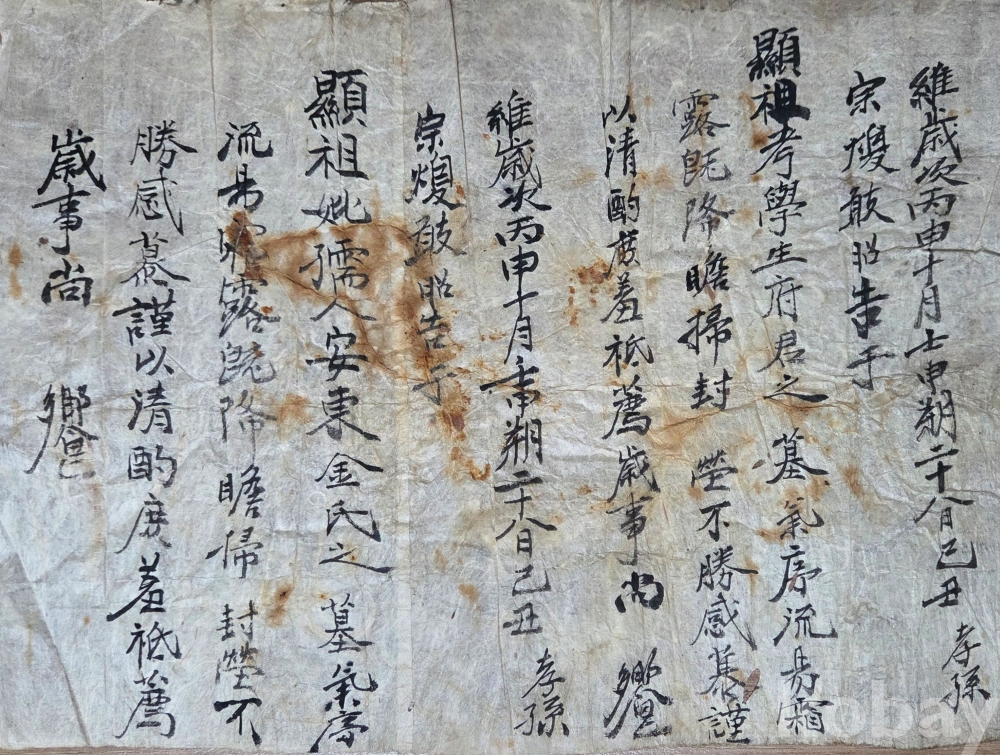 維歲次丙申十月壬申朔二十八日己丑 孝孫
宗敢昭告于
顯祖考學生府君之 墓氣序流易霜
露旣降瞻掃封 塋不勝感慕謹
以清酌庶羞祗薦歲事尚 饗
維歲次丙申十月壬申朔二十八日己丑 孝孫
宗敢昭告于
顯祖妣孺人安東金氏之 墓氣序
流易霜露旣降瞻掃 封塋不
勝感慕謹以清酌庶羞祗薦
歲事尚 饗